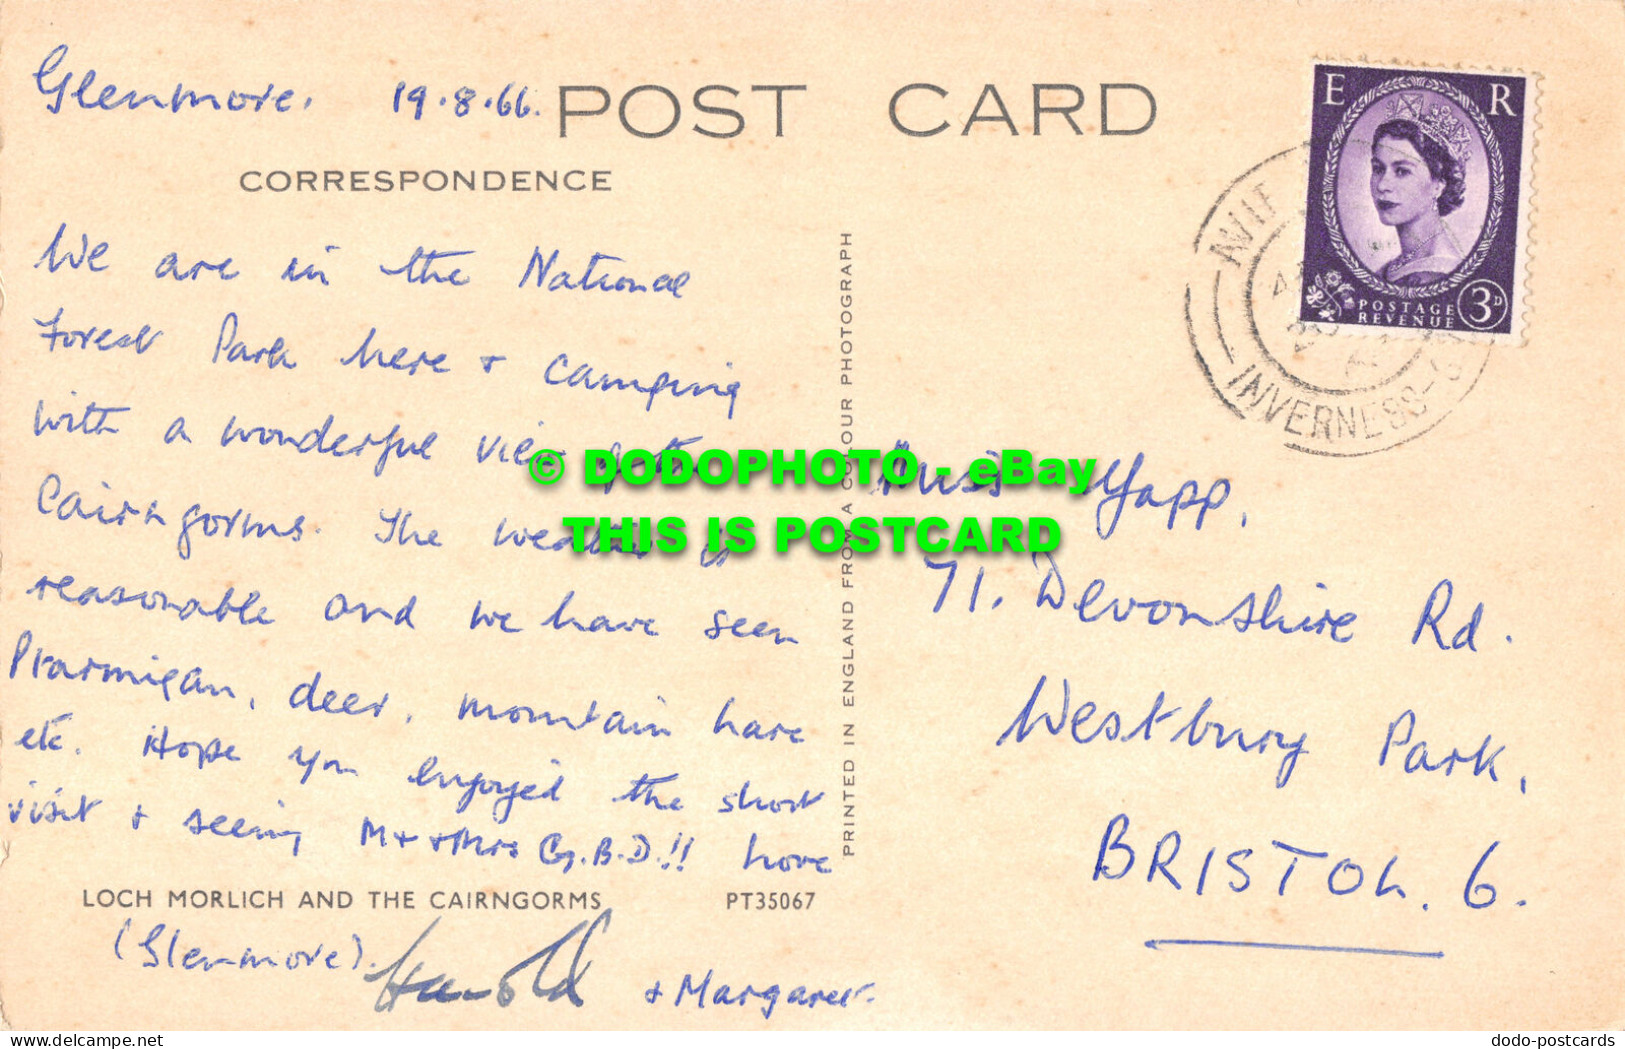 Glenmore. 19.8.66.
POST CARD
CORRESPONDENCE
We are in the National
Forest Park here + camping
with a wonderful view of the
Cairngorms. The weather is
reasonable and we have seen
Ptarmigan, deer, mountain hare
etc. Hope you enjoyed the short
visit + seeing Mr + Mrs G.B.D.!! love
LOCH MORLICH AND THE CAIRNGORMS PT35067
(Glenmore). Harold + Margaret.
PRINTED IN ENGLAND FROM A COLOUR PHOTOGRAPH
E R
POSTAGE
REVENUE
3D
INVERNESS-
Miss Yapp,
71, Devonshire Rd.
Westbury Park,
BRISTOL. 6.
© DODOPHOTO - eBay
THIS IS POSTCARD
delcampe.net
dodo-postcards